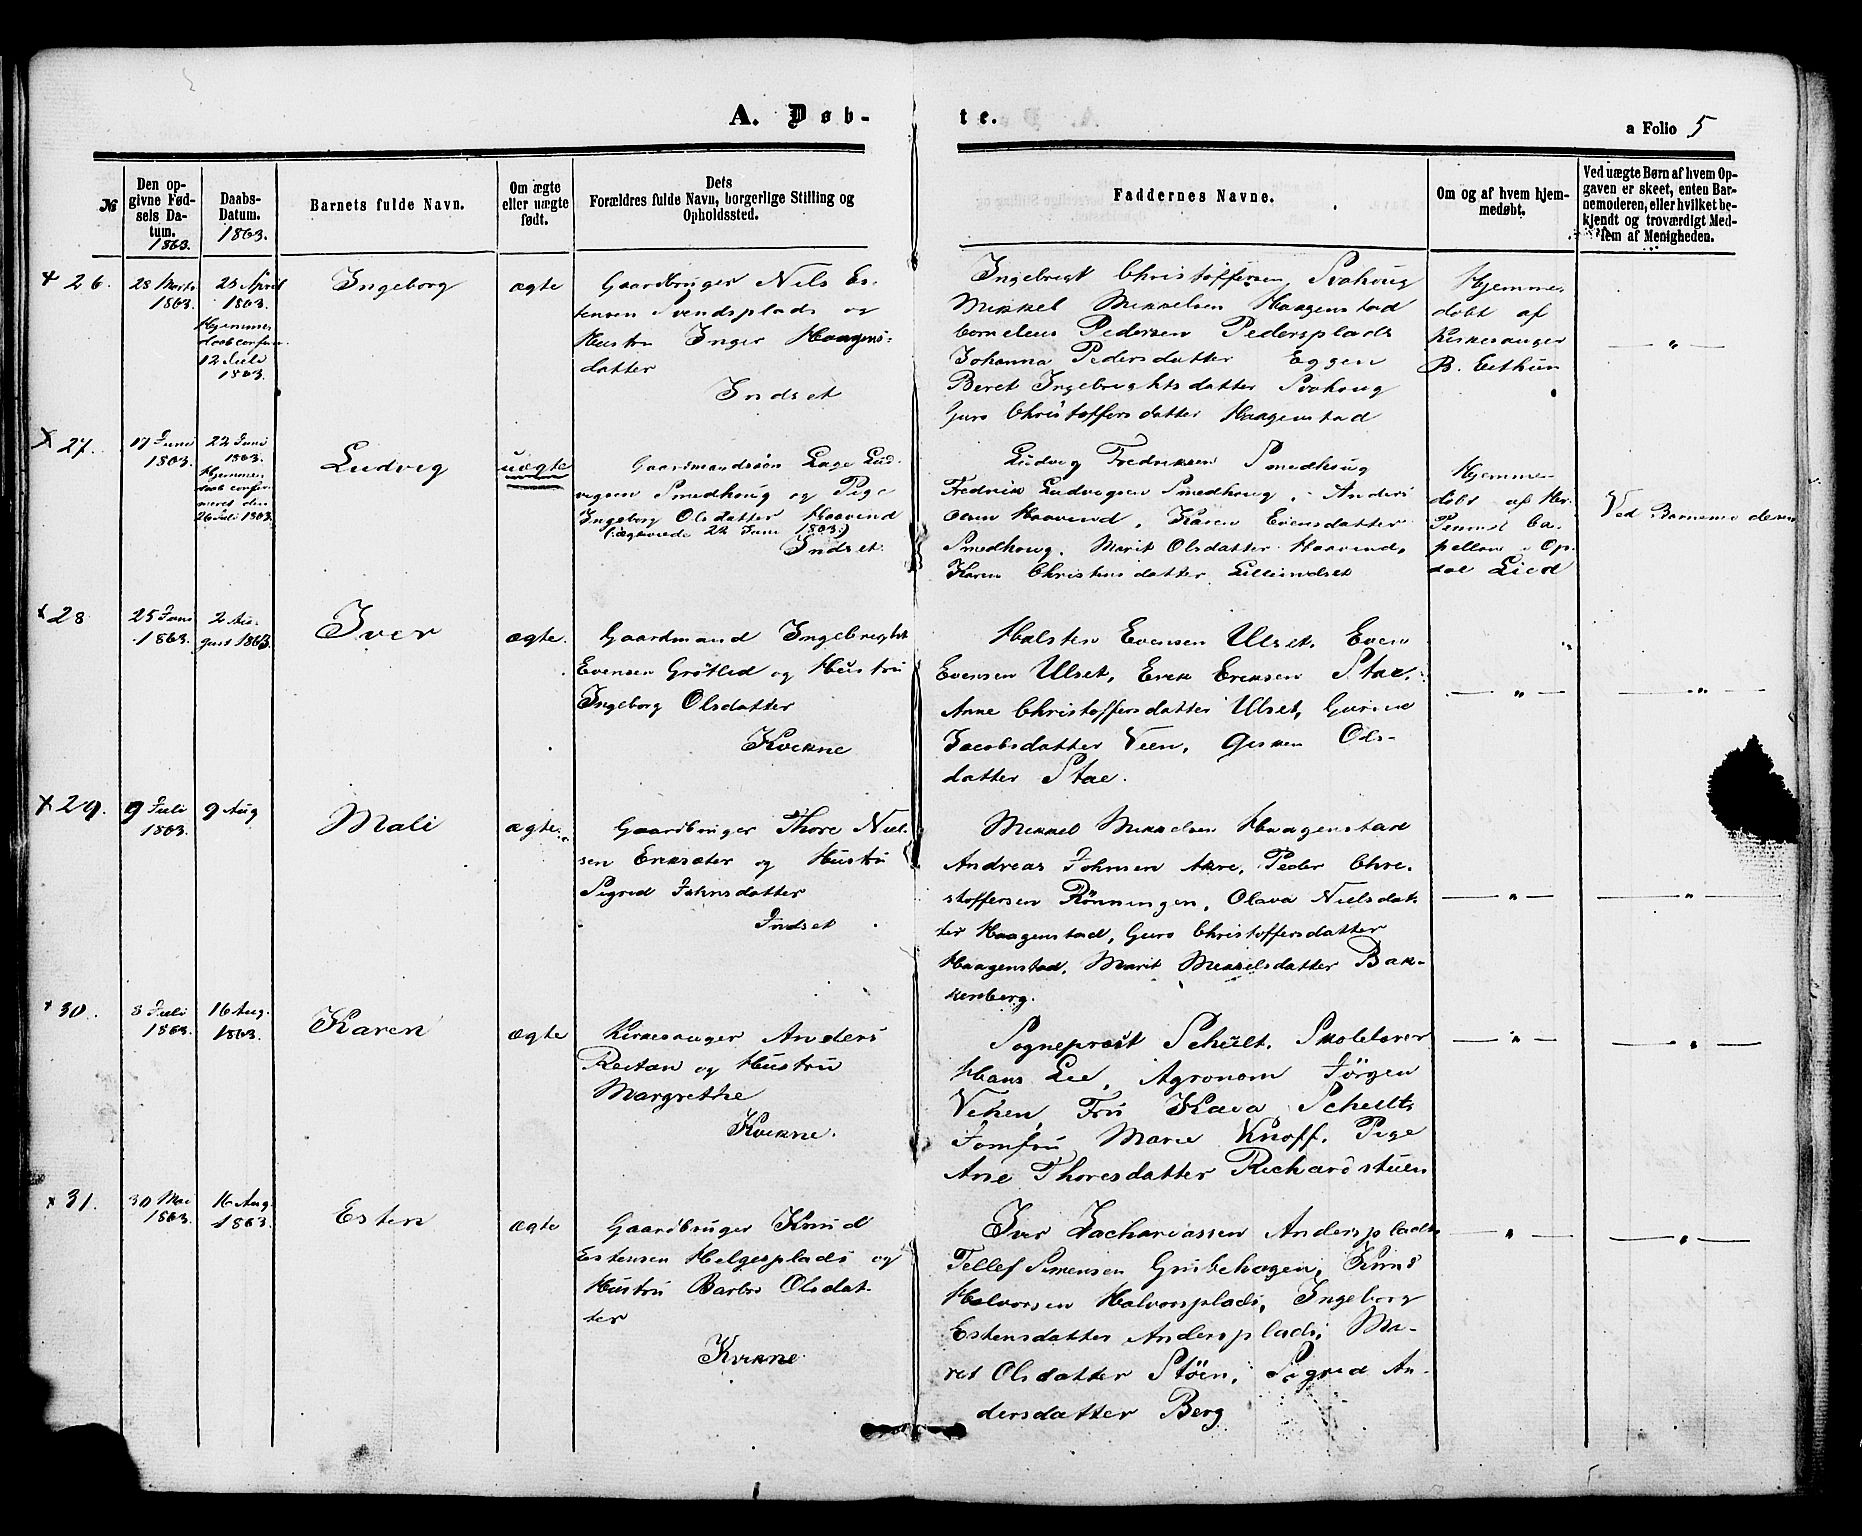 A. Døb-
te.
a Folio 5
№
Den op-
givne Fød-
sels Da-
tum.
1863.
Daabs-
Datum.
1863.
Barnets fulde Navn.
Om ægte
eller uægte
født.
Dets
Forældres fulde Navn, borgerlige Stilling og
Opholdssted.
Faddernes Navne.
Om og af hvem hjem-
medøbt.
Ved uægte Børn af hvem Op-
gaven er skeet, enten Bar-
nemoderen, eller hvilket be-
kjendt og troværdigt Med-
lem af Menigheden.
+ 26.
28 Marts
1863.
23 April
1863.
Hjemme
daab confir
12 Juli
1863.
Ingeborg
ægte
Gaardbruger Nils Es-
tensen Svendsplads og
Hustru Inger Haagens-
datter
Indset
Ingebrigt Christoffersen
Mikkel Mikkelsen Haagenstad
Cornelius Pedersen Pedersplads
Johanna Pedersdatter Eggen
Beret Ingebrigtsdatter
Guro Christoffersdatter Haagenstad
Hjemme
døbt af
Kirkesanger
B.
— " —
x 27.
17 Juni
1863.
22 Juni
1863.
Hjemme
daab confir
meret den
26 Juli 1863.
Ludvig
uægte
Gaardmandsøn Lage Lud-
vigsen Smedhoug og Pige
Ingeborg Olsdatter Haavind
22 Juni 1863.)
Indset.
Ludvig Fredriksen Smedhoug
Fredrik Ludvigsen Smedhoug, Anders
Olsen Haavind, Karen Evensdatter
Smedhoug, Marit Olsdatter Haavind,
Karen Christensdatter Lilleindset
Hjemme
døbt af Hr.
Ca-
pellan i Op-
dal Lied
Ved Barnemoderen
x 28
25 Juni
1863.
2 Au-
gust 1863.
Iver
ægte.
Gaardmand Ingebrigt
Evensen Grøtlid og Hustru
Ingeborg Olsdatter
Kvikne
Halsten Evensen Ulset, Even
Evensen Ulset, Erik Eriksen Stae,
Anne Christoffersdatter Ulset, Gurine
Jacobsdatter Veen, Gisken Ols-
datter Stae.
— " —
— " —
x 29.
9 Juli
1863.
9 Aug
Mali
ægte.
Gaardbruger Thore Niel-
sen Eriksæter og Hustru
Sigrid Johnsdatter
Indset
Mikkel Mikkelsen Haagenstad
Andreas Johnsen Akre, Peder Chri-
stoffersen Rönningen, Olava Nielsdat-
ter Haagenstad, Guro Christoffersdatter
Haagenstad, Marit Mikkelsdatter Bak-
kenberg.
— " —
— " —
x 30.
8 Juli
1863.
16 Aug.
1863.
Karen
ægte
Kirkesanger Anders
Reitan og Hustru
Margrethe
Kvikne.
Sogneprest Schult, Skolelærer
Hans Lie, Agronom Jörgen
Veken, Fru Kaia Schult,
Jomfru Marie Knoff, Pige
Ane Thoresdatter Richardstuen
— " —
— " —
x 31.
30 Mai
1863.
16 Aug.
1863.
Esten
ægte
Gaardbruger Knud
Estensen Helgesplads og
Hustru Barbro Olsdat-
ter
Kvikne
Iver Zachariassen Andersplads
Tellef Simensen Grubehagen, Knud
Halvorsen Halvorsplads, Ingeborg
Estensdatter Andersplads, Ma-
rit Olsdatter Stöen, Sigrid An-
dersdatter Berg
— " —
— " —